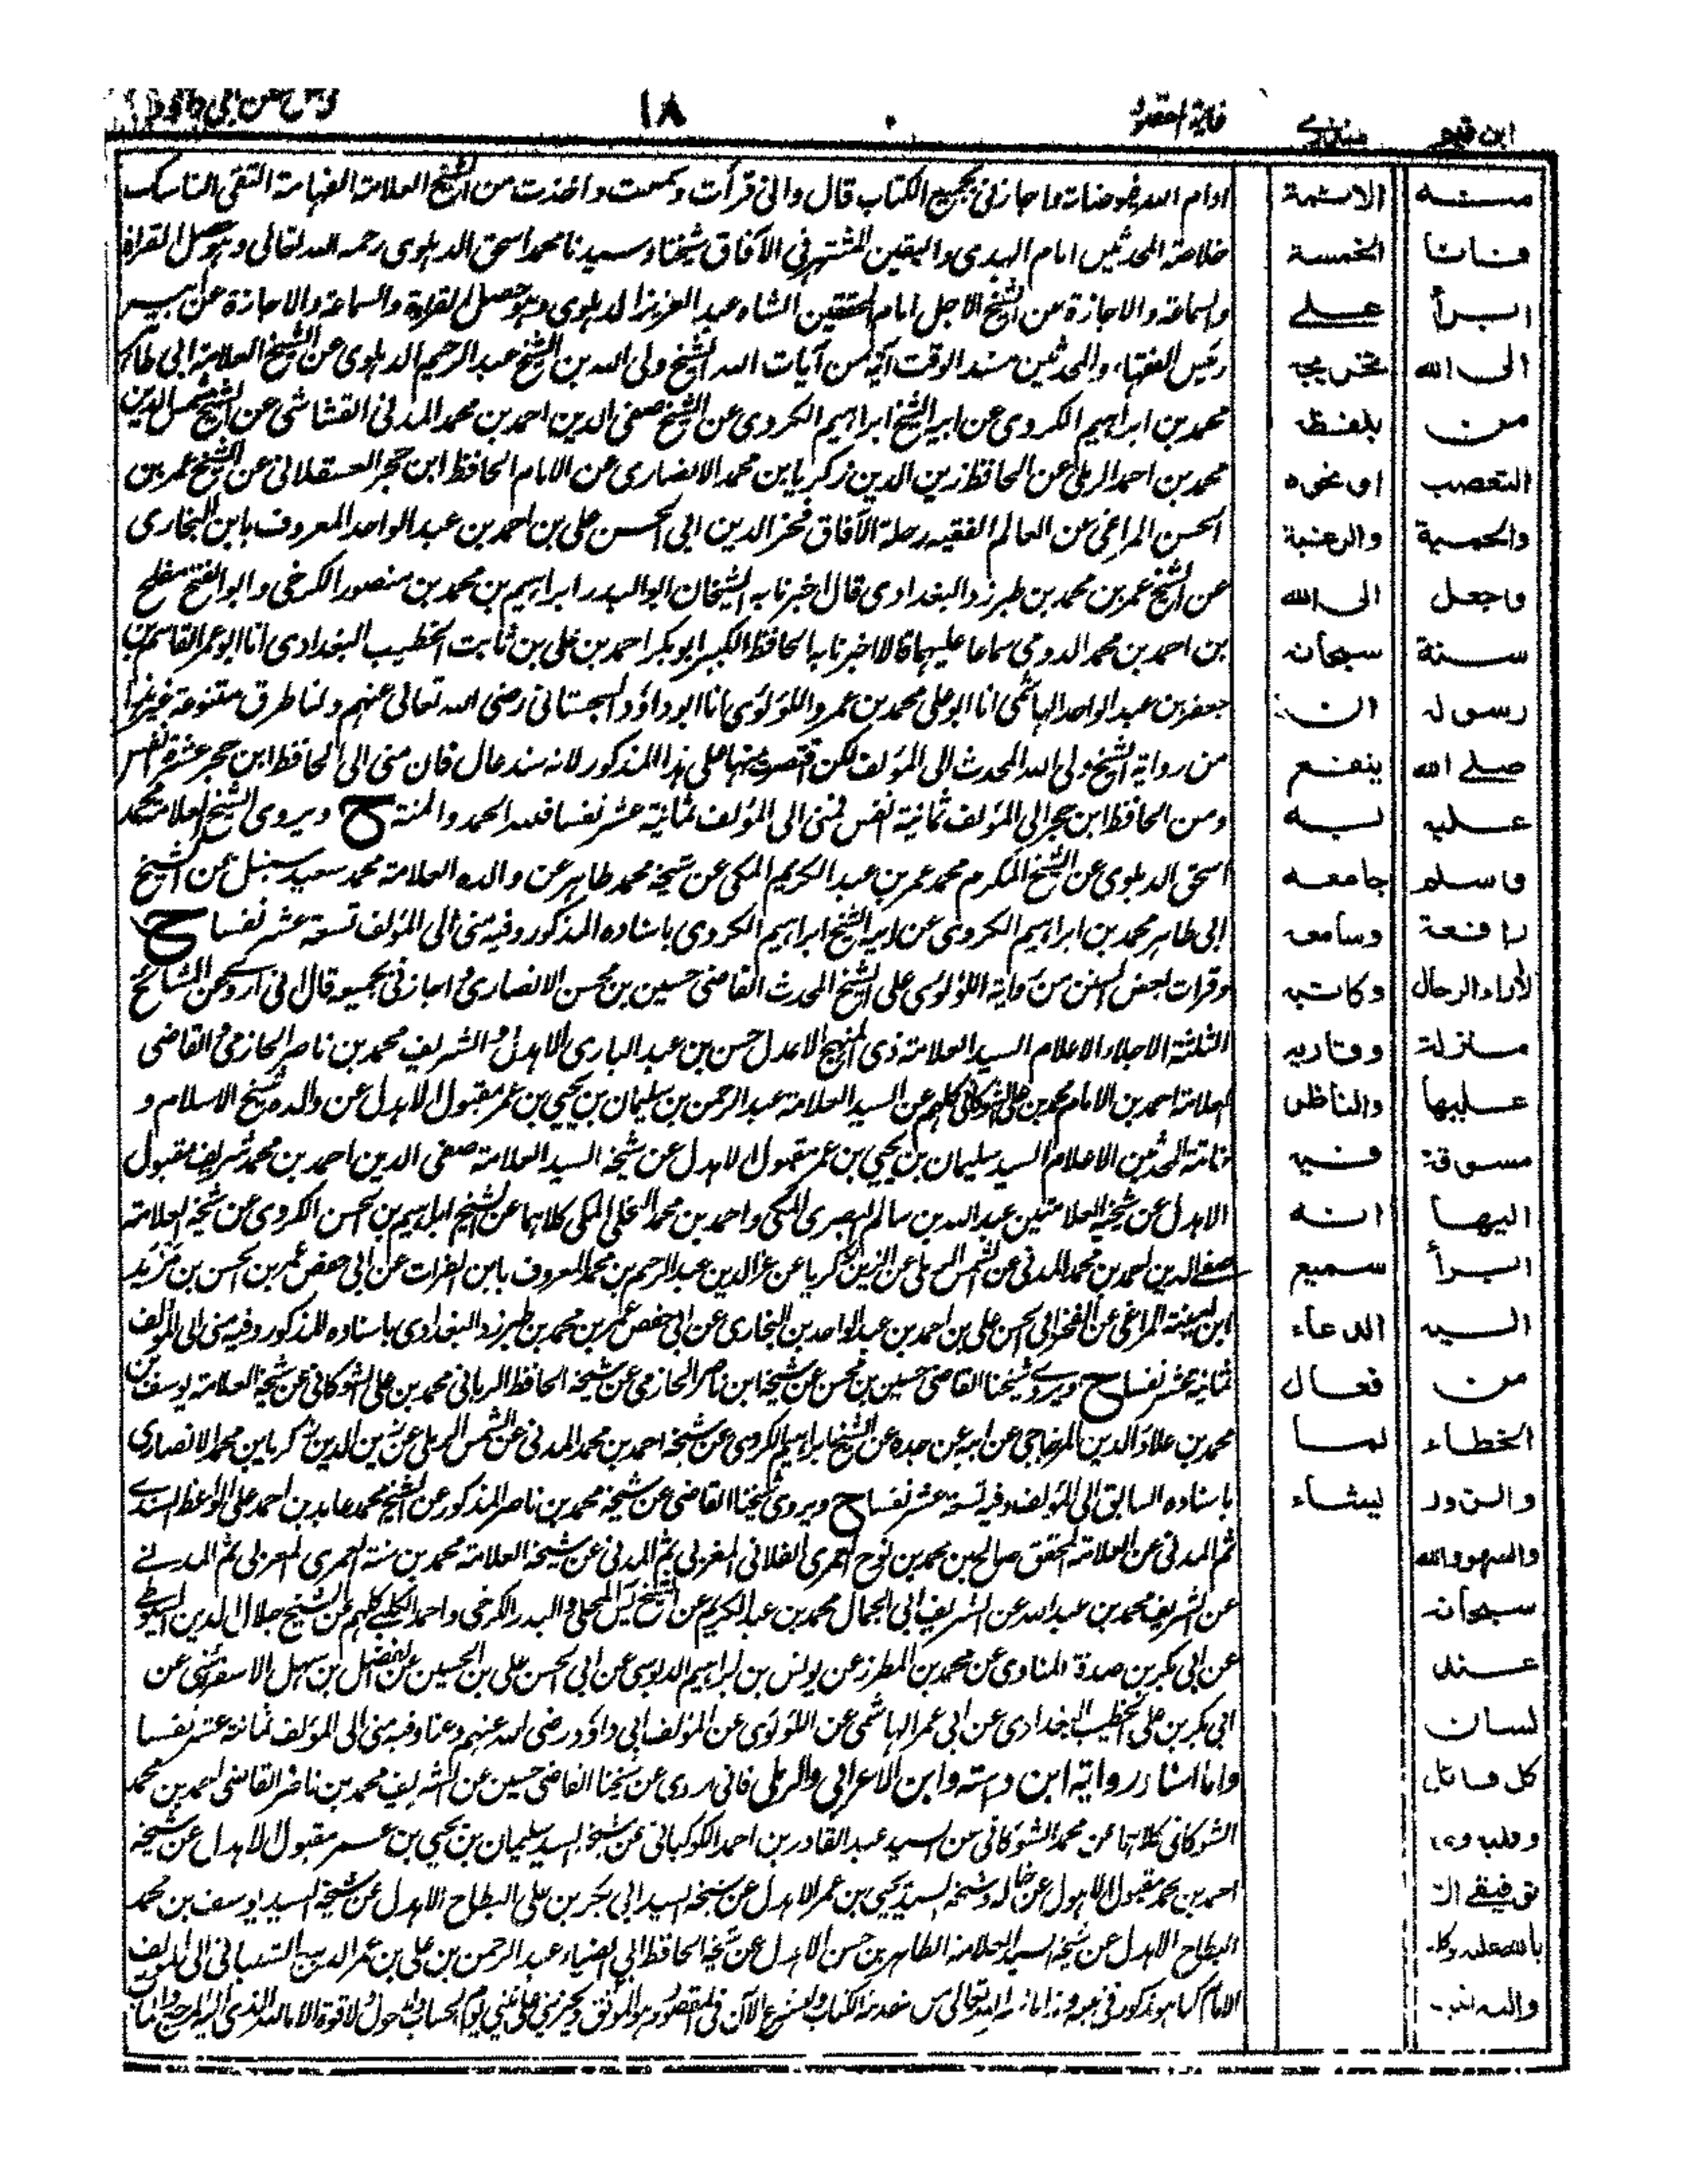 غاية المقصود
١٨
ابن قيم
منذري
ادام الله فيوضاته واجازني بجميع الكتاب قال واني قرأت وسمعت واخذت من الشيخ العلامة الفهامة التقي الناسك
خلاصة المحدثين امام الهدى واليقين المشتهر في الآفاق شيخنا وسيدنا محمد اسحق الدهلوي رحمه الله تعالى وهو حصل القراءة
والسماعة والاجازة عن الشيخ الاجل امام المحققين الشاه عبد العزيز الدهلوي وهو حصل القراءة والسماعة والاجازة عن ابيه
رئيس الفقهاء والمحدثين مسند الوقت آية من آيات الله الشيخ ولي الله بن الشيخ عبد الرحيم الدهلوي عن الشيخ العلامة ابي طاهر
محمد بن ابراهيم الكردي عن ابيه الشيخ ابراهيم الكردي عن الشيخ صفي الدين احمد بن محمد المدني القشاشي عن الشيخ شمس الدين
محمد بن احمد الرملي عن الحافظ زين الدين زكريا بن محمد الانصاري عن الامام الحافظ ابن حجر العسقلاني عن الشيخ عمر بن
الحسن المراغي عن العالم الفقيه رحلة الآفاق فخر الدين ابي الحسن علي بن احمد بن عبد الواحد المعروف بابن البخاري
عن الشيخ عمر بن محمد بن طبرزد البغدادي قال اخبرنا به الشيخان ابو البدر ابراهيم بن محمد بن منصور الكرخي وابو الفتح مفلح
بن احمد بن محمد الدومي سماعا عليهما قالا اخبرنا به الحافظ الكبير ابو بكر احمد بن علي بن ثابت الخطيب البغدادي انا ابو عمر القاسم بن
جعفر بن عبد الواحد الهاشمي انا ابو علي محمد بن عمرو اللؤلؤي انا ابو داؤد السجستاني رضي الله تعالى عنهم ولنا طرق متنوعة غير هذا
من رواية الشيخ ولي الله المحدث الى المؤلف لكن اقتصرت منها على هذا المذكور لانه سند عال فان مني الى الحافظ ابن حجر عشرة انفس
ومن الحافظ ابن حجر الى المؤلف ثمانية انفس فمني الى المؤلف ثمانية عشر نفسا فلله الحمد والمنة ح ويروي الشيخ العلامة محمد
اسحق الدهلوي عن الشيخ المكرم محمد عمر بن عبد الكريم المكي عن شيخه محمد طاهر عن والده العلامة محمد سعيد سنبل عن الشيخ
ابي طاهر محمد بن ابراهيم الكردي عن ابيه الشيخ ابراهيم الكردي باسناده المذكور وفيه مني الى المؤلف تسعة عشر نفسا ح
وقرات بعض السنن من رواية اللؤلؤي على الشيخ المحدث القاضي حسين بن محسن الانصاري واجازني بجميعه قال اني اروي عن المشائخ
الثلثة الاجلاء الاعلام السيد العلامة ذي المنهج الاعدل حسن بن عبد الباري الاهدل والشريف محمد بن ناصر الحازمي والقاضي
العلامة احمد بن الامام محمد بن علي الشوكاني كلهم عن السيد العلامة عبد الرحمن بن سليمان بن يحيى بن عمر مقبول الاهدل عن والده شيخ الاسلام و
خاتمة المحدثين الاعلام السيد سليمان بن يحيى بن عمر مقبول الاهدل عن شيخه السيد العلامة صفي الدين احمد بن محمد شريف مقبول
الاهدل عن شيخيه العلامتين عبد الله بن سالم البصري المكي واحمد بن محمد النخلي المكي كلاهما عن الشيخ ابراهيم بن الحسن الكردي عن شيخه العلامة
صفي الدين احمد بن محمد المدني عن الشمس الرملي عن الزين زكريا عن عز الدين عبد الرحيم بن محمد المعروف بابن الفرات عن ابي حفص عمر بن الحسن بن مزيد
ابن اميلة المراغي عن الفخر ابي الحسن علي بن احمد بن عبد الواحد بن البخاري عن ابي حفص عمر بن محمد بن طبرزد البغدادي باسناده المذكور وفيه مني الى المؤلف
ثمانية عشر نفسا ح ويروي شيخنا القاضي حسين بن محسن عن شيخه ابن ناصر الحازمي عن شيخه الحافظ الرباني محمد بن علي الشوكاني عن شيخه العلامة يوسف بن
محمد بن علاء الدين المزجاجي عن ابيه عن جده عن الشيخ ابراهيم الكردي عن شيخه احمد بن محمد المدني عن الشمس الرملي عن زين الدين زكريا بن محمد الانصاري
باسناده السابق الى المؤلف وفيه تسعة عشر نفسا ح ويروي شيخنا القاضي عن شيخه محمد بن ناصر المذكور عن الشيخ محمد عابد بن احمد علي الواعظ السندي
ثم المدني عن العلامة المحقق صالح بن محمد بن نوح العمري الفلاني المغربي ثم المدني عن شيخه العلامة محمد بن سنة العمري المغربي ثم المدني
عن الشريف محمد بن عبد الله عن الشريف ابي الجمال محمد بن عبد الكريم عن الشيخ يس المحلي والبدر الكرخي واحمد كلهم عن الشيخ جلال الدين السيوطي
عن ابي بكر بن صدقة المناوي عن محمد بن المطرز عن يونس بن ابراهيم الدبوسي عن ابي الحسن علي بن الحسين عن الفضل بن سهل الاسفرائني عن
ابي بكر بن علي الخطيب البغدادي عن ابي عمر الهاشمي عن اللؤلؤي عن المؤلف ابي داؤد رضي الله عنهم وعنا وفيه مني الى المؤلف ثمانية عشر نفسا
واما اسناد رواية ابن داسة وابن الاعرابي والرملي فاني اروي عن شيخنا القاضي حسين عن الشريف محمد بن ناصر القاضي احمد بن محمد
الشوكاني كلاهما عن محمد الشوكاني عن السيد عبد القادر بن احمد الكوكباني عن شيخه السيد سليمان بن يحيى بن عمر مقبول الاهدل عن شيخه
احمد بن محمد مقبول الاهدل عن خاله وشيخه السيد يحيى بن عمر الاهدل عن شيخه السيد ابي بكر بن علي البطاح الاهدل عن شيخه السيد يوسف بن محمد
البطاح الاهدل عن شيخه السيد العلامة الطاهر بن حسن الاهدل عن شيخه الحافظ ابي الضياء عبد الرحمن بن علي بن عمر الديبع الشيباني الى المؤلف
الامام كما هو مذكور في
الائمة
الخمسة
على
تخريجه
بلفظه
او نحوه
والرغبة
الى الله
سبحانه
ان
ينفع
به
جامعه
وسامعه
وكاتبه
وقاريه
والناظر
فيه
انه
سميع
الدعاء
فعال
لما
يشاء
سنته
فانا
ابرأ
الى الله
من
التعصب
والحمية
واجعل
سنة
رسوله
صلى الله
عليه
وسلم
رافعة
لآراء الرجال
منزلة
عليها
مسوقة
اليها
ابرأ
اليه
من
الخطاء
والزور
والسهو والله
سبحانه
عند
لسان
كل قائل
وقلبه وما
توفيقي الا
بالله عليه توكلت
واليه انيب